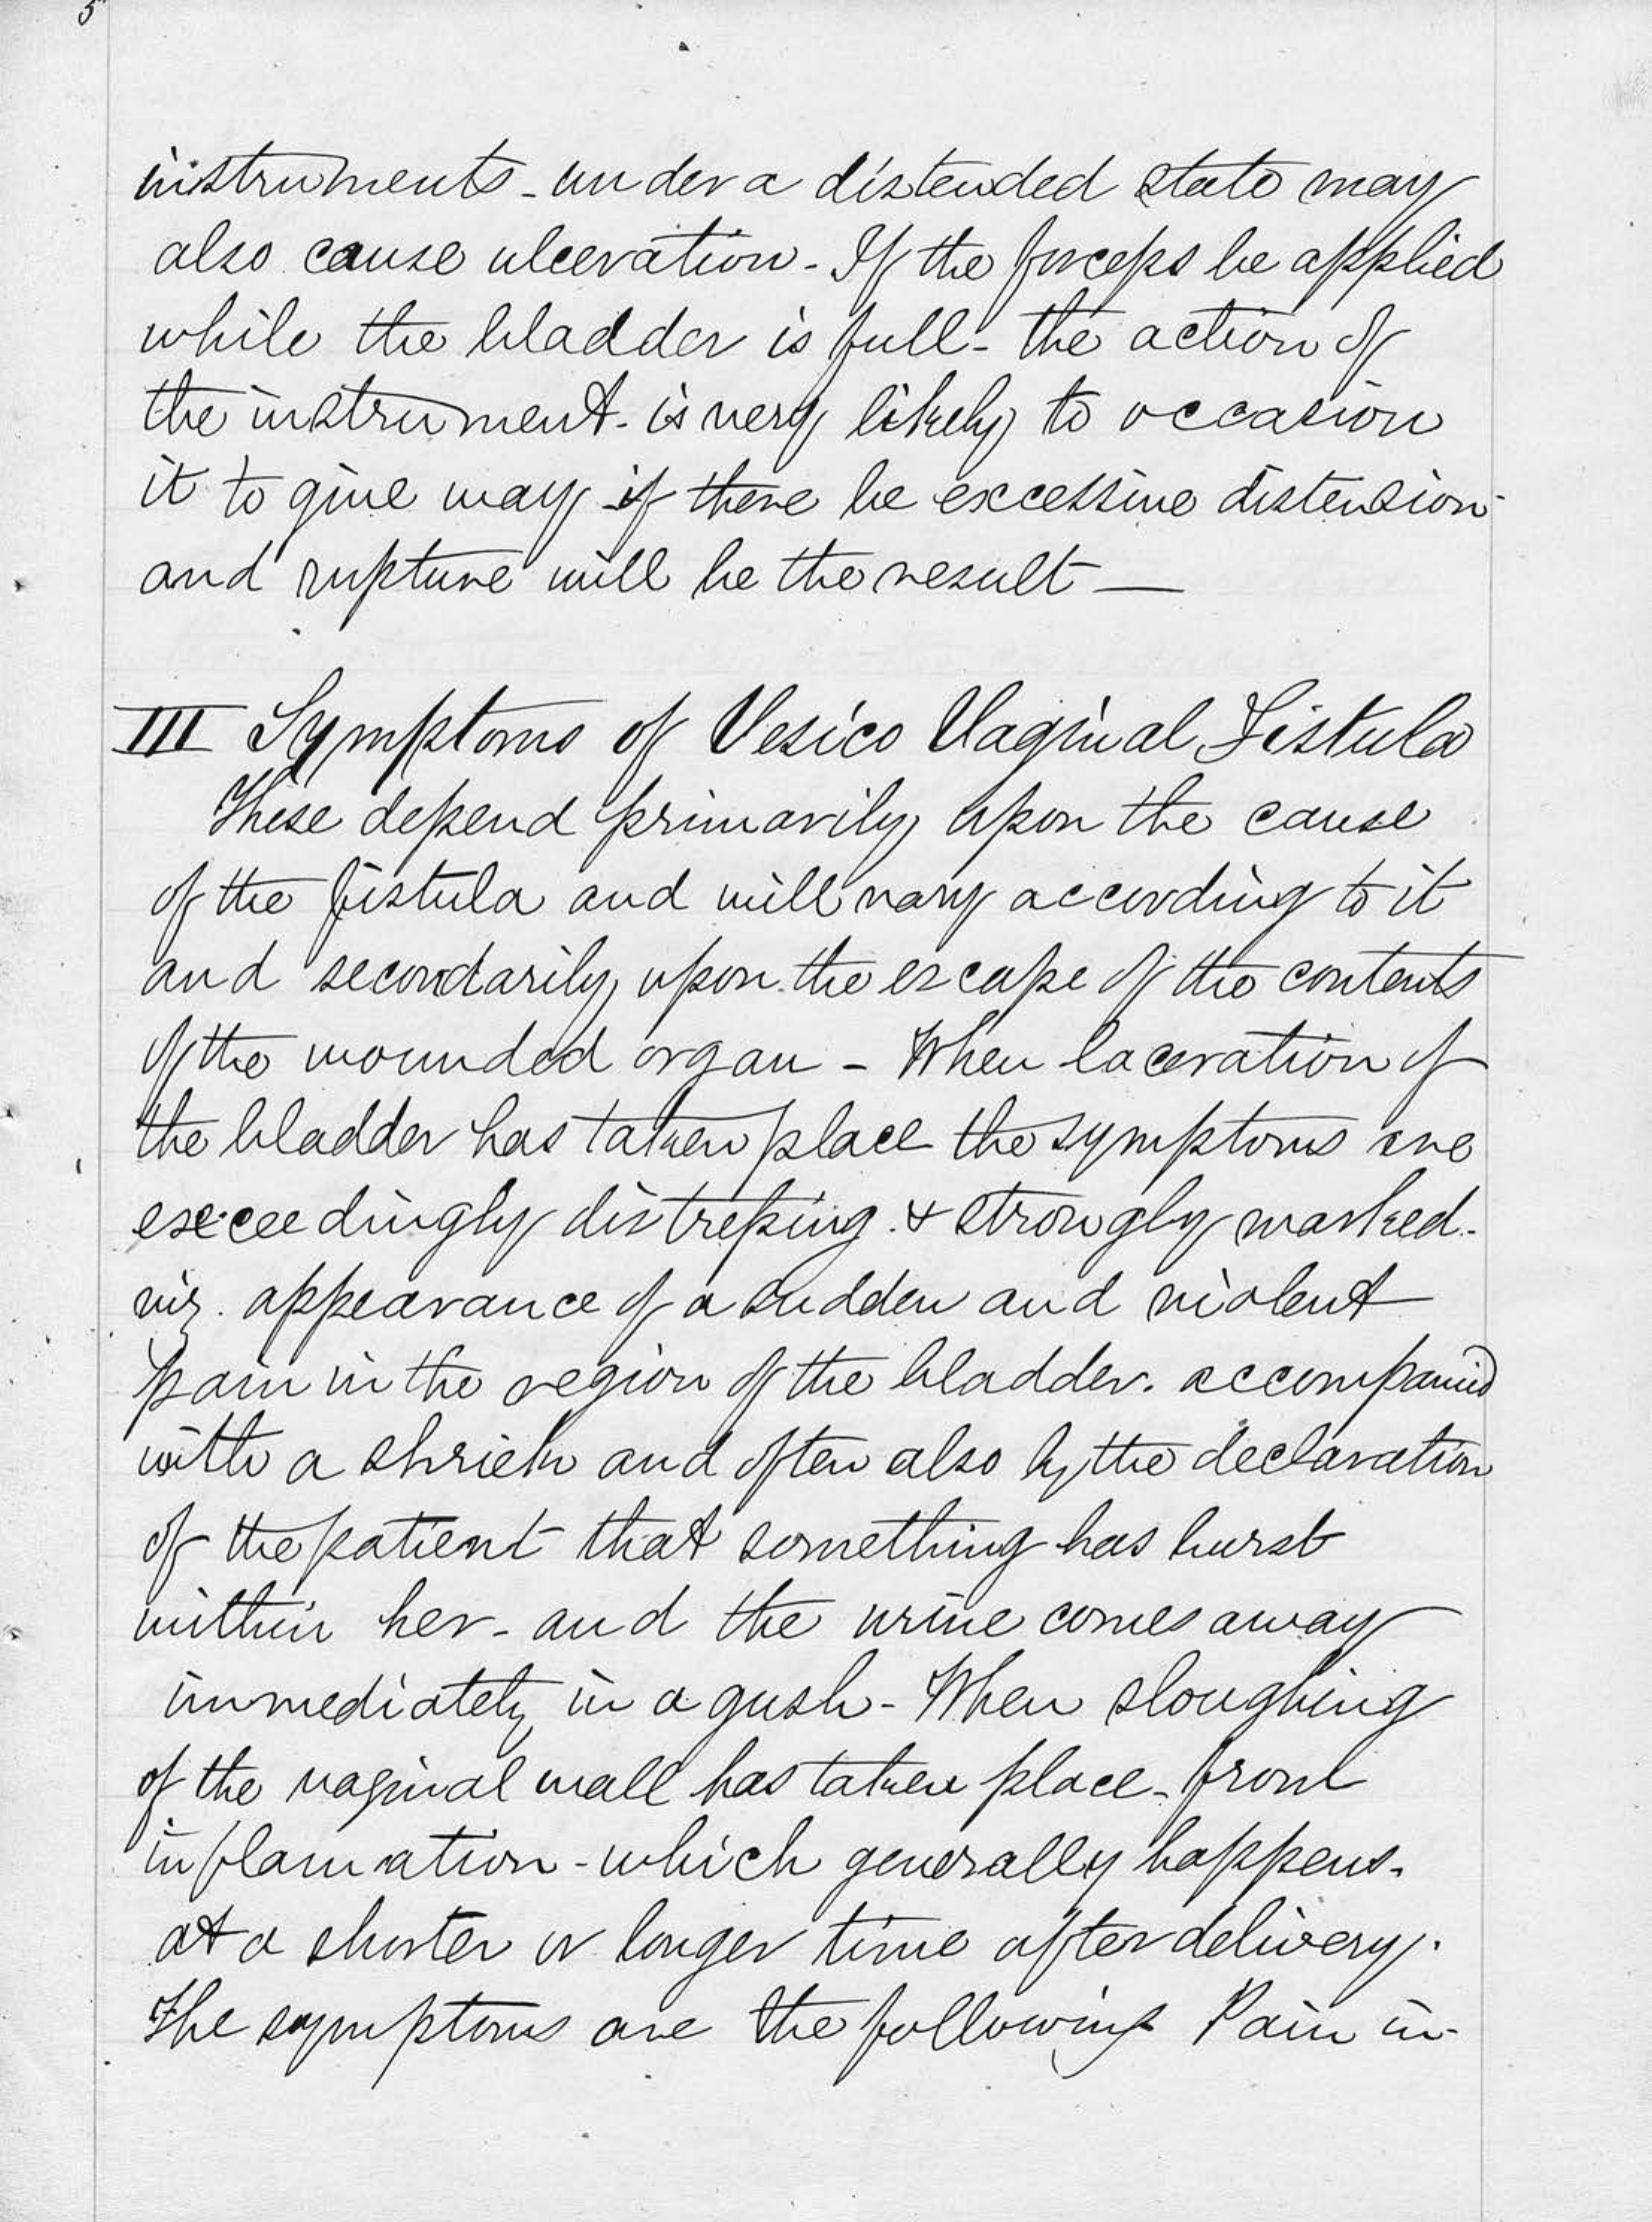 5
instruments - under a distended state may
also cause ulceration - If the forceps be applied
while the bladder is full - the action of
the instrument - is very likely to occasion
it to give way if there be excessive distension -
and rupture will be the result —
III Symptoms of Vesico Vaginal Fistula
These depend primarily upon the cause
of the fistula and will vary according to it
and secondarily upon the escape of the contents
of the wounded organ - When laceration of
the bladder has taken place the symptoms are
exceedingly distressing & strongly marked -
viz. appearance of a sudden and violent
pain in the region of the bladder. accompanied
with a shriek and often also by the declaration
of the patient that something has burst
within her - and the urine comes away
immediately in a gush - When sloughing
of the vaginal wall has taken place - from
inflamation - which generally happens -
at a shorter or longer time after delivery.
The symptoms are the following Pain in -